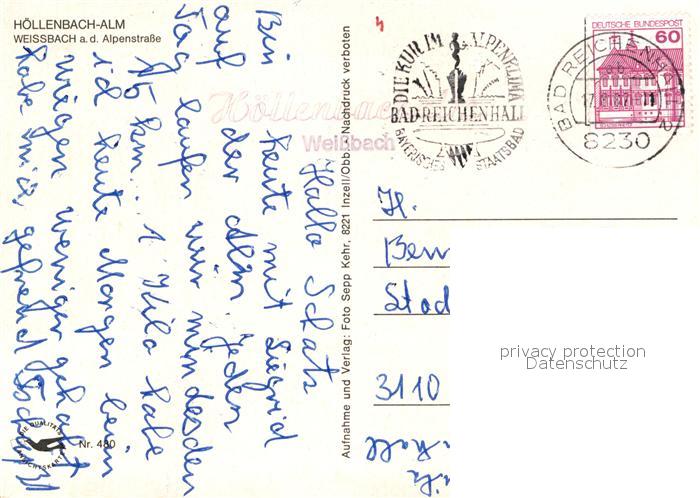 HÖLLENBACH-ALM
WEISSBACH a.d. Alpenstraße
Hallo Schatz
Bin heute mit Sigrid
auf der Alm. Jeden
Tag laufen wir mindesdens
15 km. 1 Kilo habe
ich heute Morgen beim
wiegen weniger gehabt
habe mich gefreud
Nr. 480
DIE QUALITÄTS
ANSICHTSKARTE
Aufnahme und Verlag: Foto Sepp Kehr, 8221 Inzell/Obb. Nachdruck verboten
Höllenbach
Weißbach
DIE KUR IM ALPENKLIMA
BAD REICHENHALL
BAYERISCHES STAATSBAD
BAD REICHENHALL 2
8230
DEUTSCHE BUNDESPOST
60
H.
Ben
Stad
3110
privacy protection
Datenschutz